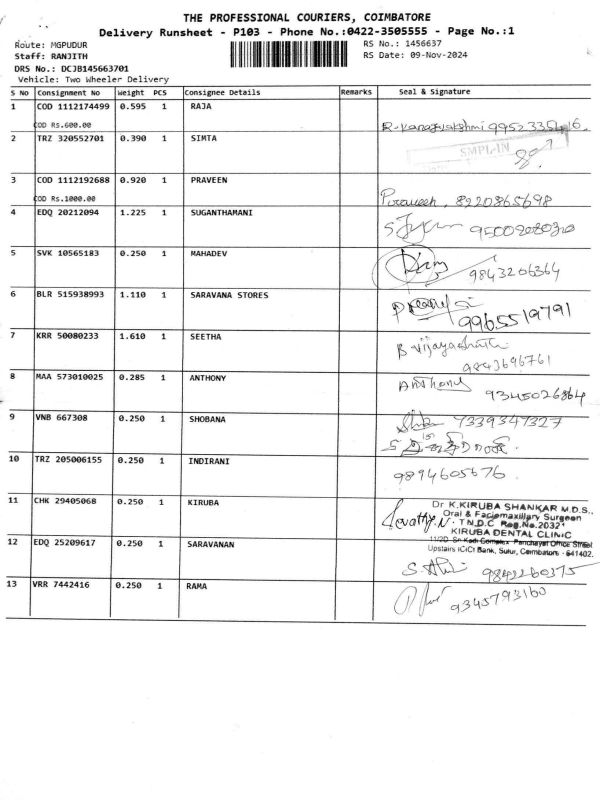 THE PROFESSIONAL COURIERS, COIMBATORE
Delivery Runsheet - P103 - Phone No.:0422-3505555 - Page No.:1
Route: MGPUDUR RS No.: 1456637
Staff: RANJITH RS Date: 09-Nov-2024
DRS No.: DCJB145663701
Vehicle: Two Wheeler Delivery
S No Consignment No Weight PCS Consignee Details Remarks Seal & Signature
1 COD 1112174499 0.595 1 RAJA
COD Rs.600.00
2 TRZ 320552701 0.390 1 SIMTA
3 COD 1112192688 0.920 1 PRAVEEN
COD Rs.1000.00 Praveen, 8220865698
4 EDQ 20212094 1.225 1 SUGANTHAMANI
5 SVK 10565183 0.250 1 MAHADEV
9843206364
6 BLR 515938993 1.110 1 SARAVANA STORES
9965519791
7 KRR 50080233 1.610 1 SEETHA
9843696761
8 MAA 573010025 0.285 1 ANTHONY Anthony
9345026864
9 VNB 667308 0.250 1 SHOBANA 7339347327
10 TRZ 205006155 0.250 1 INDIRANI
9894605676
11 CHK 29405068 0.250 1 KIRUBA Dr. K.KIRUBA SHANKAR M.D.S.,
Oral & Faciomaxillary Surgeon
T.N.D.C Reg.No.20321
KIRUBA DENTAL CLINIC
Panchayat Office Street
12 EDQ 25209617 0.250 1 SARAVANAN Upstairs ICICI Bank, Sulur, Coimbatore - 641402.
9842260375
13 VRR 7442416 0.250 1 RAMA
9345793160